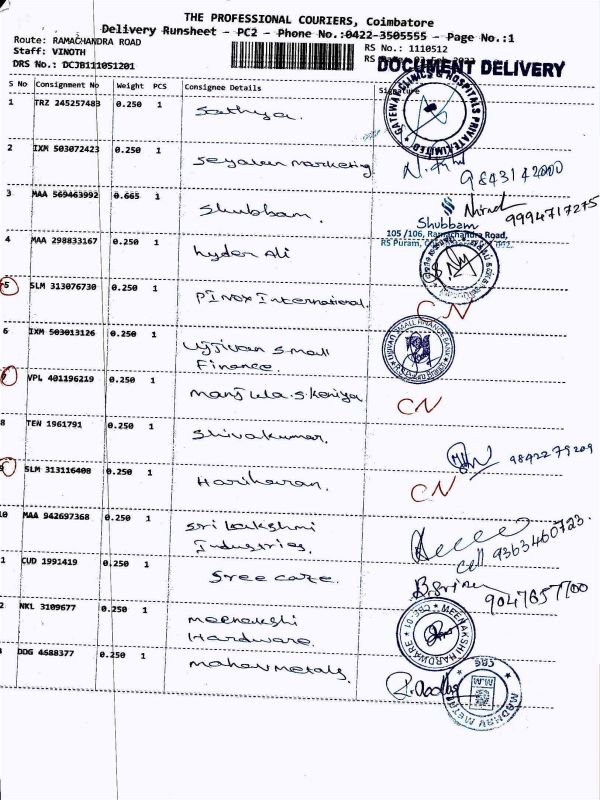 THE PROFESSIONAL COURIERS, Coimbatore
Delivery Runsheet - PC2 - Phone No.:0422-3505555 - Page No.:1
Route: RAMACHANDRA ROAD
RS No.: 1110512
Staff: VINOTH
RS
DOCUMENT DELIVERY
DRS No.: DCJB1110S1201
S No Consignment No Weight PCS Consignee Details Signature
1 TRZ 245257483 0.250 1 Sathya.
GATEWAY CLINICS & HOSPITALS PRIVATE LIMITED
2 IXM 503072423 0.250 1 Seyalan marketing
9843142000
3 MAA 569463992 0.665 1 Shubbam.
9994717275
Shubbam
105 /106, Ramachandra Road,
RS Puram,
4 MAA 298833167 0.250 1 hyder Ali
5 SLM 313076730 0.250 1 PInox International. CN
6 IXM 503013126 0.250 1 Ujjivan Small
Finance.
UJJIVAN SMALL FINANCE BANK
VPL 401196219 0.250 1 manjula.s.keniya CN
8 TEN 1961791 0.250 1 Shivakumar.
9842279209
SLM 313116408 0.250 1 Hariharan. CN
10 MAA 942697368 0.250 1 Sri Lakshmi
Industries.
Cell 9363460723.
1 CUD 1991419 0.250 1 Sree care.
9047657700
2 NKL 3109677 0.250 1 meenakshi
Hardware.
MEENAKSHI HARDWARE * CBE-01 *
DDG 4688377 0.250 1 mahav metals
CBE
M.M
MADHAV METAL